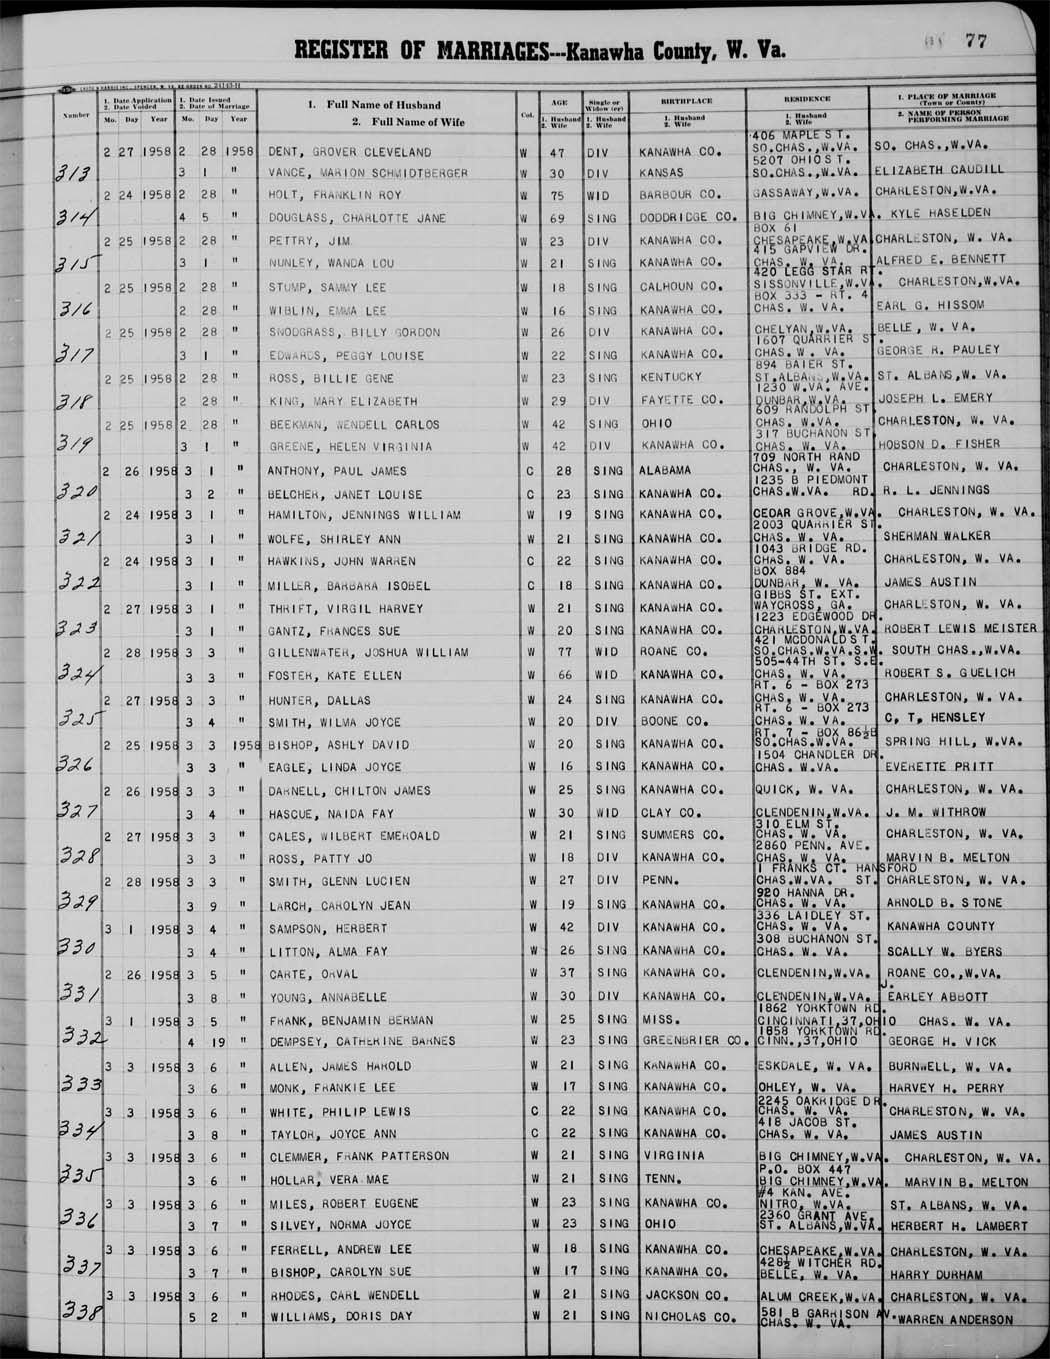 77
REGISTER OF MARRIAGES---Kanawha County, W. Va.
Number | 1. Date Application 2. Date Voided Mo. Day Year | 1. Date Issued 2. Date of Marriage Mo. Day Year | 1. Full Name of Husband 2. Full Name of Wife | Col. | AGE 1. Husband 2. Wife | Single or Widow (er) 1. Husband 2. Wife | BIRTHPLACE 1. Husband 2. Wife | RESIDENCE 1. Husband 2. Wife | 1. PLACE OF MARRIAGE (Town or County) 2. NAME OF PERSON PERFORMING MARRIAGE
406 MAPLE ST.
2 27 1958 2 28 1958 DENT, GROVER CLEVELAND W 47 DIV KANAWHA CO. SO.CHAS.,W.VA. SO. CHAS.,W.VA.
5207 OHIO ST.
313 3 1 " VANCE, MARION SCHMIDTBERGER W 30 DIV KANSAS SO.CHAS.,W.VA. ELIZABETH CAUDILL
2 24 1958 2 28 " HOLT, FRANKLIN ROY W 75 WID BARBOUR CO. GASSAWAY,W.VA. CHARLESTON,W.VA.
314 4 5 " DOUGLASS, CHARLOTTE JANE W 69 SING DODDRIDGE CO. BIG CHIMNEY,W.VA. KYLE HASELDEN
BOX 61
2 25 1958 2 28 " PETTRY, JIM W 23 DIV KANAWHA CO. CHESAPEAKE,W.VA. CHARLESTON, W. VA.
415 GAPVIEW DR.
315 3 1 " NUNLEY, WANDA LOU W 21 SING KANAWHA CO. CHAS. W. VA. ALFRED E. BENNETT
420 LEGG STAR RT.
2 25 1958 2 28 " STUMP, SAMMY LEE W 18 SING CALHOUN CO. SISSONVILLE,W.VA. CHARLESTON,W.VA.
BOX 333 - RT. 4
316 2 28 " WIBLIN, EMMA LEE W 16 SING KANAWHA CO. CHAS. W. VA. EARL G. HISSOM
2 25 1958 2 28 " SNODGRASS, BILLY GORDON W 26 DIV KANAWHA CO. CHELYAN,W.VA. BELLE, W. VA.
1607 QUARRIER ST.
317 3 1 " EDWARDS, PEGGY LOUISE W 22 SING KANAWHA CO. CHAS. W . VA. GEORGE R. PAULEY
894 BAIER ST.
2 25 1958 2 28 " ROSS, BILLIE GENE W 23 SING KENTUCKY ST.ALBANS,W.VA. ST. ALBANS,W. VA.
1230 W.VA. AVE.
318 2 28 " KING, MARY ELIZABETH W 29 DIV FAYETTE CO. DUNBAR,W.VA. JOSEPH L. EMERY
609 RANDOLPH ST
2 25 1958 2 28 " BEEKMAN, WENDELL CARLOS W 42 SING OHIO CHAS. W. VA. CHARLESTON, W. VA.
317 BUCHANON ST
319 3 1 " GREENE, HELEN VIRGINIA W 42 DIV KANAWHA CO. CHAS. W. VA. HOBSON D. FISHER
709 NORTH RAND
2 26 1958 3 1 " ANTHONY, PAUL JAMES C 28 SING ALABAMA CHAS., W. VA. CHARLESTON, W. VA.
1235 B PIEDMONT
320 3 2 " BELCHER, JANET LOUISE C 23 SING KANAWHA CO. CHAS.W.VA. RD. R. L. JENNINGS
2 24 1958 3 1 " HAMILTON, JENNINGS WILLIAM W 19 SING KANAWHA CO. CEDAR GROVE,W.VA. CHARLESTON, W. VA.
2003 QUARRIER ST.
321 3 1 " WOLFE, SHIRLEY ANN W 21 SING KANAWHA CO. CHAS. W. VA. SHERMAN WALKER
1043 BRIDGE RD.
2 24 1958 3 1 " HAWKINS, JOHN WARREN C 22 SING KANAWHA CO. CHAS. W. VA. CHARLESTON, W. VA.
BOX 884
322 3 1 " MILLER, BARBARA ISOBEL C 18 SING KANAWHA CO. DUNBAR, W. VA. JAMES AUSTIN
GIBBS ST. EXT.
2 27 1958 3 1 " THRIFT, VIRGIL HARVEY W 21 SING KANAWHA CO. WAYCROSS, GA. CHARLESTON, W. VA.
1223 EDGEWOOD DR.
323 3 1 " GANTZ, FRANCES SUE W 20 SING KANAWHA CO. CHARLESTON,W.VA. ROBERT LEWIS MEISTER
421 MCDONALD ST.
2 28 1958 3 3 " GILLENWATER, JOSHUA WILLIAM W 77 WID ROANE CO. SO.CHAS.W.VA.S.W. SOUTH CHAS.,W.VA.
505-44TH ST. S.E.
324 3 3 " FOSTER, KATE ELLEN W 66 WID KANAWHA CO. CHAS. W. VA. ROBERT S. GUELICH
RT. 6 - BOX 273
2 27 1958 3 3 " HUNTER, DALLAS W 24 SING KANAWHA CO. CHAS. W. VA. CHARLESTON, W. VA.
RT. 6 - BOX 273
325 3 4 " SMITH, WILMA JOYCE W 20 DIV BOONE CO. CHAS. W. VA. C. T. HENSLEY
RT. 7 - BOX 86½B
2 25 1958 3 3 1958 BISHOP, ASHLY DAVID W 20 SING KANAWHA CO. SO.CHAS.W.VA. SPRING HILL, W.VA.
1504 CHANDLER DR.
326 3 3 " EAGLE, LINDA JOYCE W 16 SING KANAWHA CO. CHAS. W.VA. EVERETTE PRITT
2 26 1958 3 3 " DARNELL, CHILTON JAMES W 25 SING KANAWHA CO. QUICK, W. VA. CHARLESTON, W. VA.
327 3 4 " HASCUE, NAIDA FAY W 30 WID CLAY CO. CLENDENIN,W.VA. J. M. WITHROW
310 ELM ST.
2 27 1958 3 3 " CALES, WILBERT EMEROALD W 21 SING SUMMERS CO. CHAS. W. VA. CHARLESTON, W. VA.
2860 PENN. AVE.
328 3 3 " ROSS, PATTY JO W 18 DIV KANAWHA CO. CHAS. W. VA. MARVIN B. MELTON
1 FRANKS CT. HANSFORD
2 28 1958 3 3 " SMITH, GLENN LUCIEN W 27 DIV PENN. CHAS.W.VA. ST. CHARLESTON, W. VA.
920 HANNA DR.
329 3 9 " LARCH, CAROLYN JEAN W 19 SING KANAWHA CO. CHAS. W. VA. ARNOLD B. STONE
336 LAIDLEY ST.
3 1 1958 3 4 " SAMPSON, HERBERT W 42 DIV KANAWHA CO. CHAS. W. VA. KANAWHA COUNTY
308 BUCHANON ST.
330 3 4 " LITTON, ALMA FAY W 26 SING KANAWHA CO. CHAS. W. VA. SCALLY W. BYERS
2 26 1958 3 5 " CARTE, ORVAL W 37 SING KANAWHA CO. CLENDENIN,W.VA. ROANE CO.,W.VA.
J.
331 3 8 " YOUNG, ANNABELLE W 30 DIV KANAWHA CO. CLENDENIN,W.VA. EARLEY ABBOTT
1862 YORKTOWN RD.
3 1 1958 3 5 " FRANK, BENJAMIN BERMAN W 25 SING MISS. CINCINNATI,37,OHIO CHAS. W. VA.
1858 YORKTOWN RD.
332 4 19 " DEMPSEY, CATHERINE BARNES W 23 SING GREENBRIER CO. CINN.,37,OHIO GEORGE H. VICK
3 3 1958 3 6 " ALLEN, JAMES HAROLD W 21 SING KANAWHA CO. ESKDALE, W. VA. BURNWELL, W. VA.
333 3 6 " MONK, FRANKIE LEE W 17 SING KANAWHA CO. OHLEY, W. VA. HARVEY H. PERRY
2245 OAKRIDGE DR.
3 3 1958 3 6 " WHITE, PHILIP LEWIS C 22 SING KANAWHA CO. CHAS. W. VA. CHARLESTON, W. VA.
418 JACOB ST.
334 3 8 " TAYLOR, JOYCE ANN C 22 SING KANAWHA CO. CHAS. W. VA. JAMES AUSTIN
3 3 1958 3 6 " CLEMMER, FRANK PATTERSON W 21 SING VIRGINIA BIG CHIMNEY,W.VA. CHARLESTON, W. VA.
P.O. BOX 447
335 3 6 " HOLLAR, VERA MAE W 21 SING TENN. BIG CHIMNEY,W.VA. MARVIN B. MELTON
#4 KAN. AVE.
3 3 1958 3 6 " MILES, ROBERT EUGENE W 23 SING KANAWHA CO. NITRO, W.VA. ST. ALBANS, W. VA.
2360 GRANT AVE.
336 3 7 " SILVEY, NORMA JOYCE W 23 SING OHIO ST. ALBANS,W.VA. HERBERT H. LAMBERT
3 3 1958 3 6 " FERRELL, ANDREW LEE W 18 SING KANAWHA CO. CHESAPEAKE,W.VA. CHARLESTON, W. VA.
428½ WITCHER RD.
337 3 7 " BISHOP, CAROLYN SUE W 17 SING KANAWHA CO. BELLE, W. VA. HARRY DURHAM
3 3 1958 3 6 " RHODES, CARL WENDELL W 21 SING JACKSON CO. ALUM CREEK,W.VA. CHARLESTON, W. VA.
581 B GARRISON AV.
338 5 2 " WILLIAMS, DORIS DAY W 21 SING NICHOLAS CO. CHAS. W. VA. WARREN ANDERSON